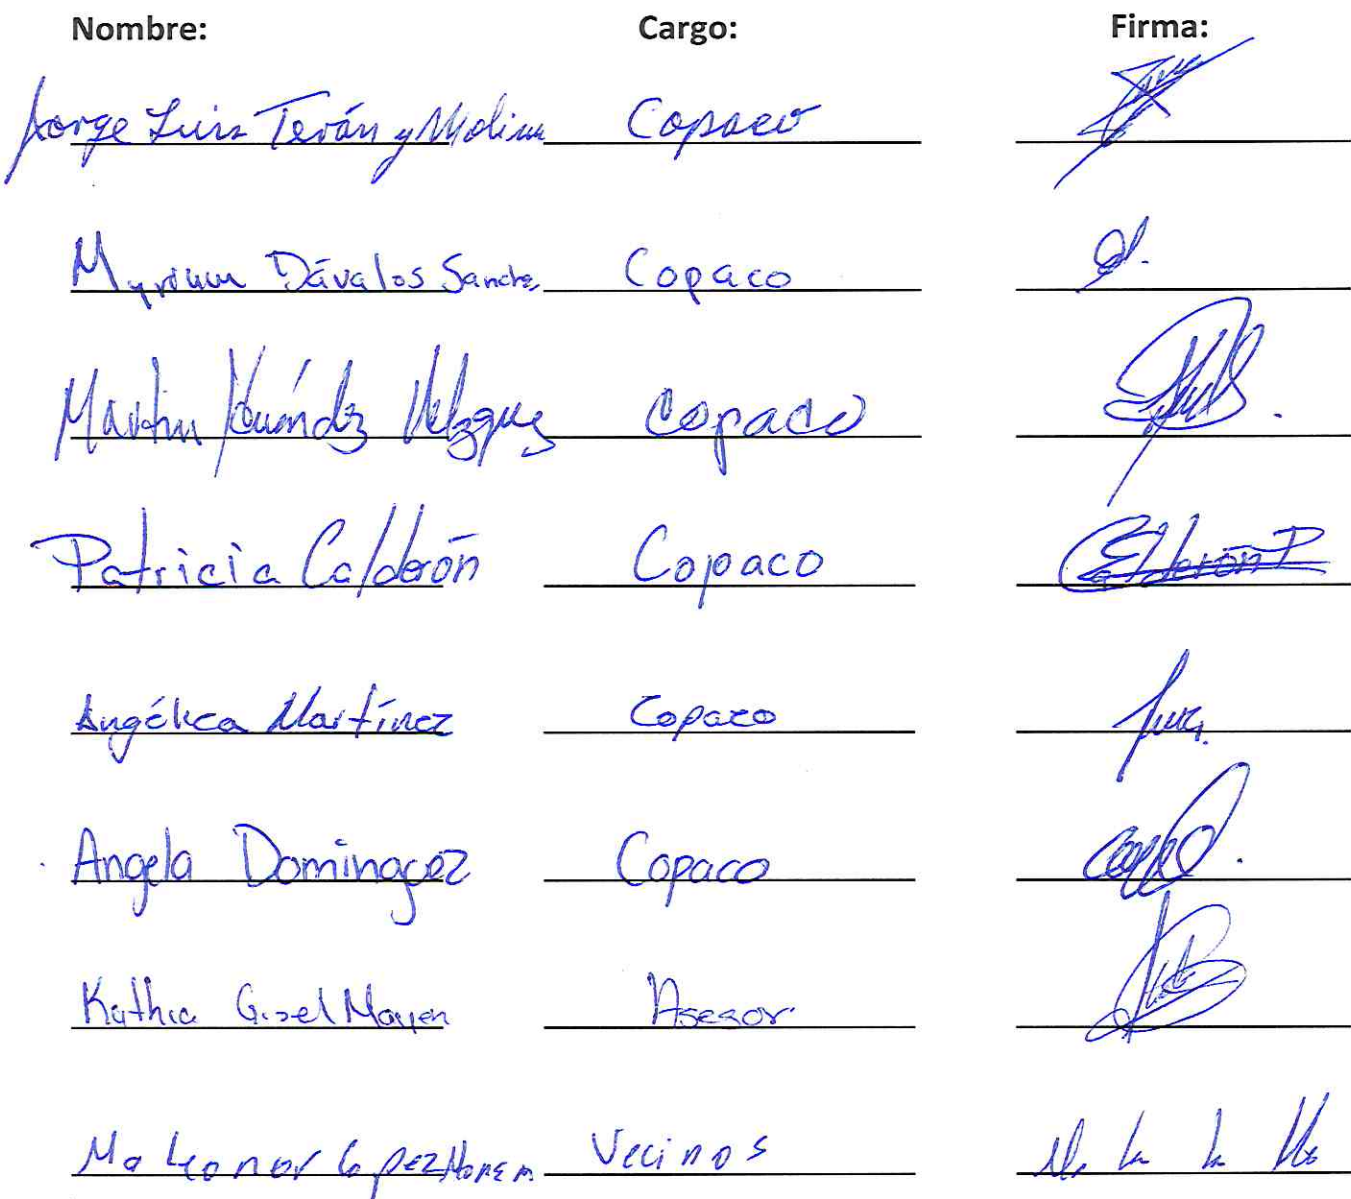 Nombre: Cargo: Firma:
Jorge Luis Terán y Molina Copaco
Myriam Dávalos Sanche Copaco
Martin Velzquez Copaco
Patricia Calderón Copaco Calderón P
Angélica Martínez Copaco
Angela Dominguez Copaco
Kathia Gisel Mayen Asesor
Ma Leonor Lopez Vecinos